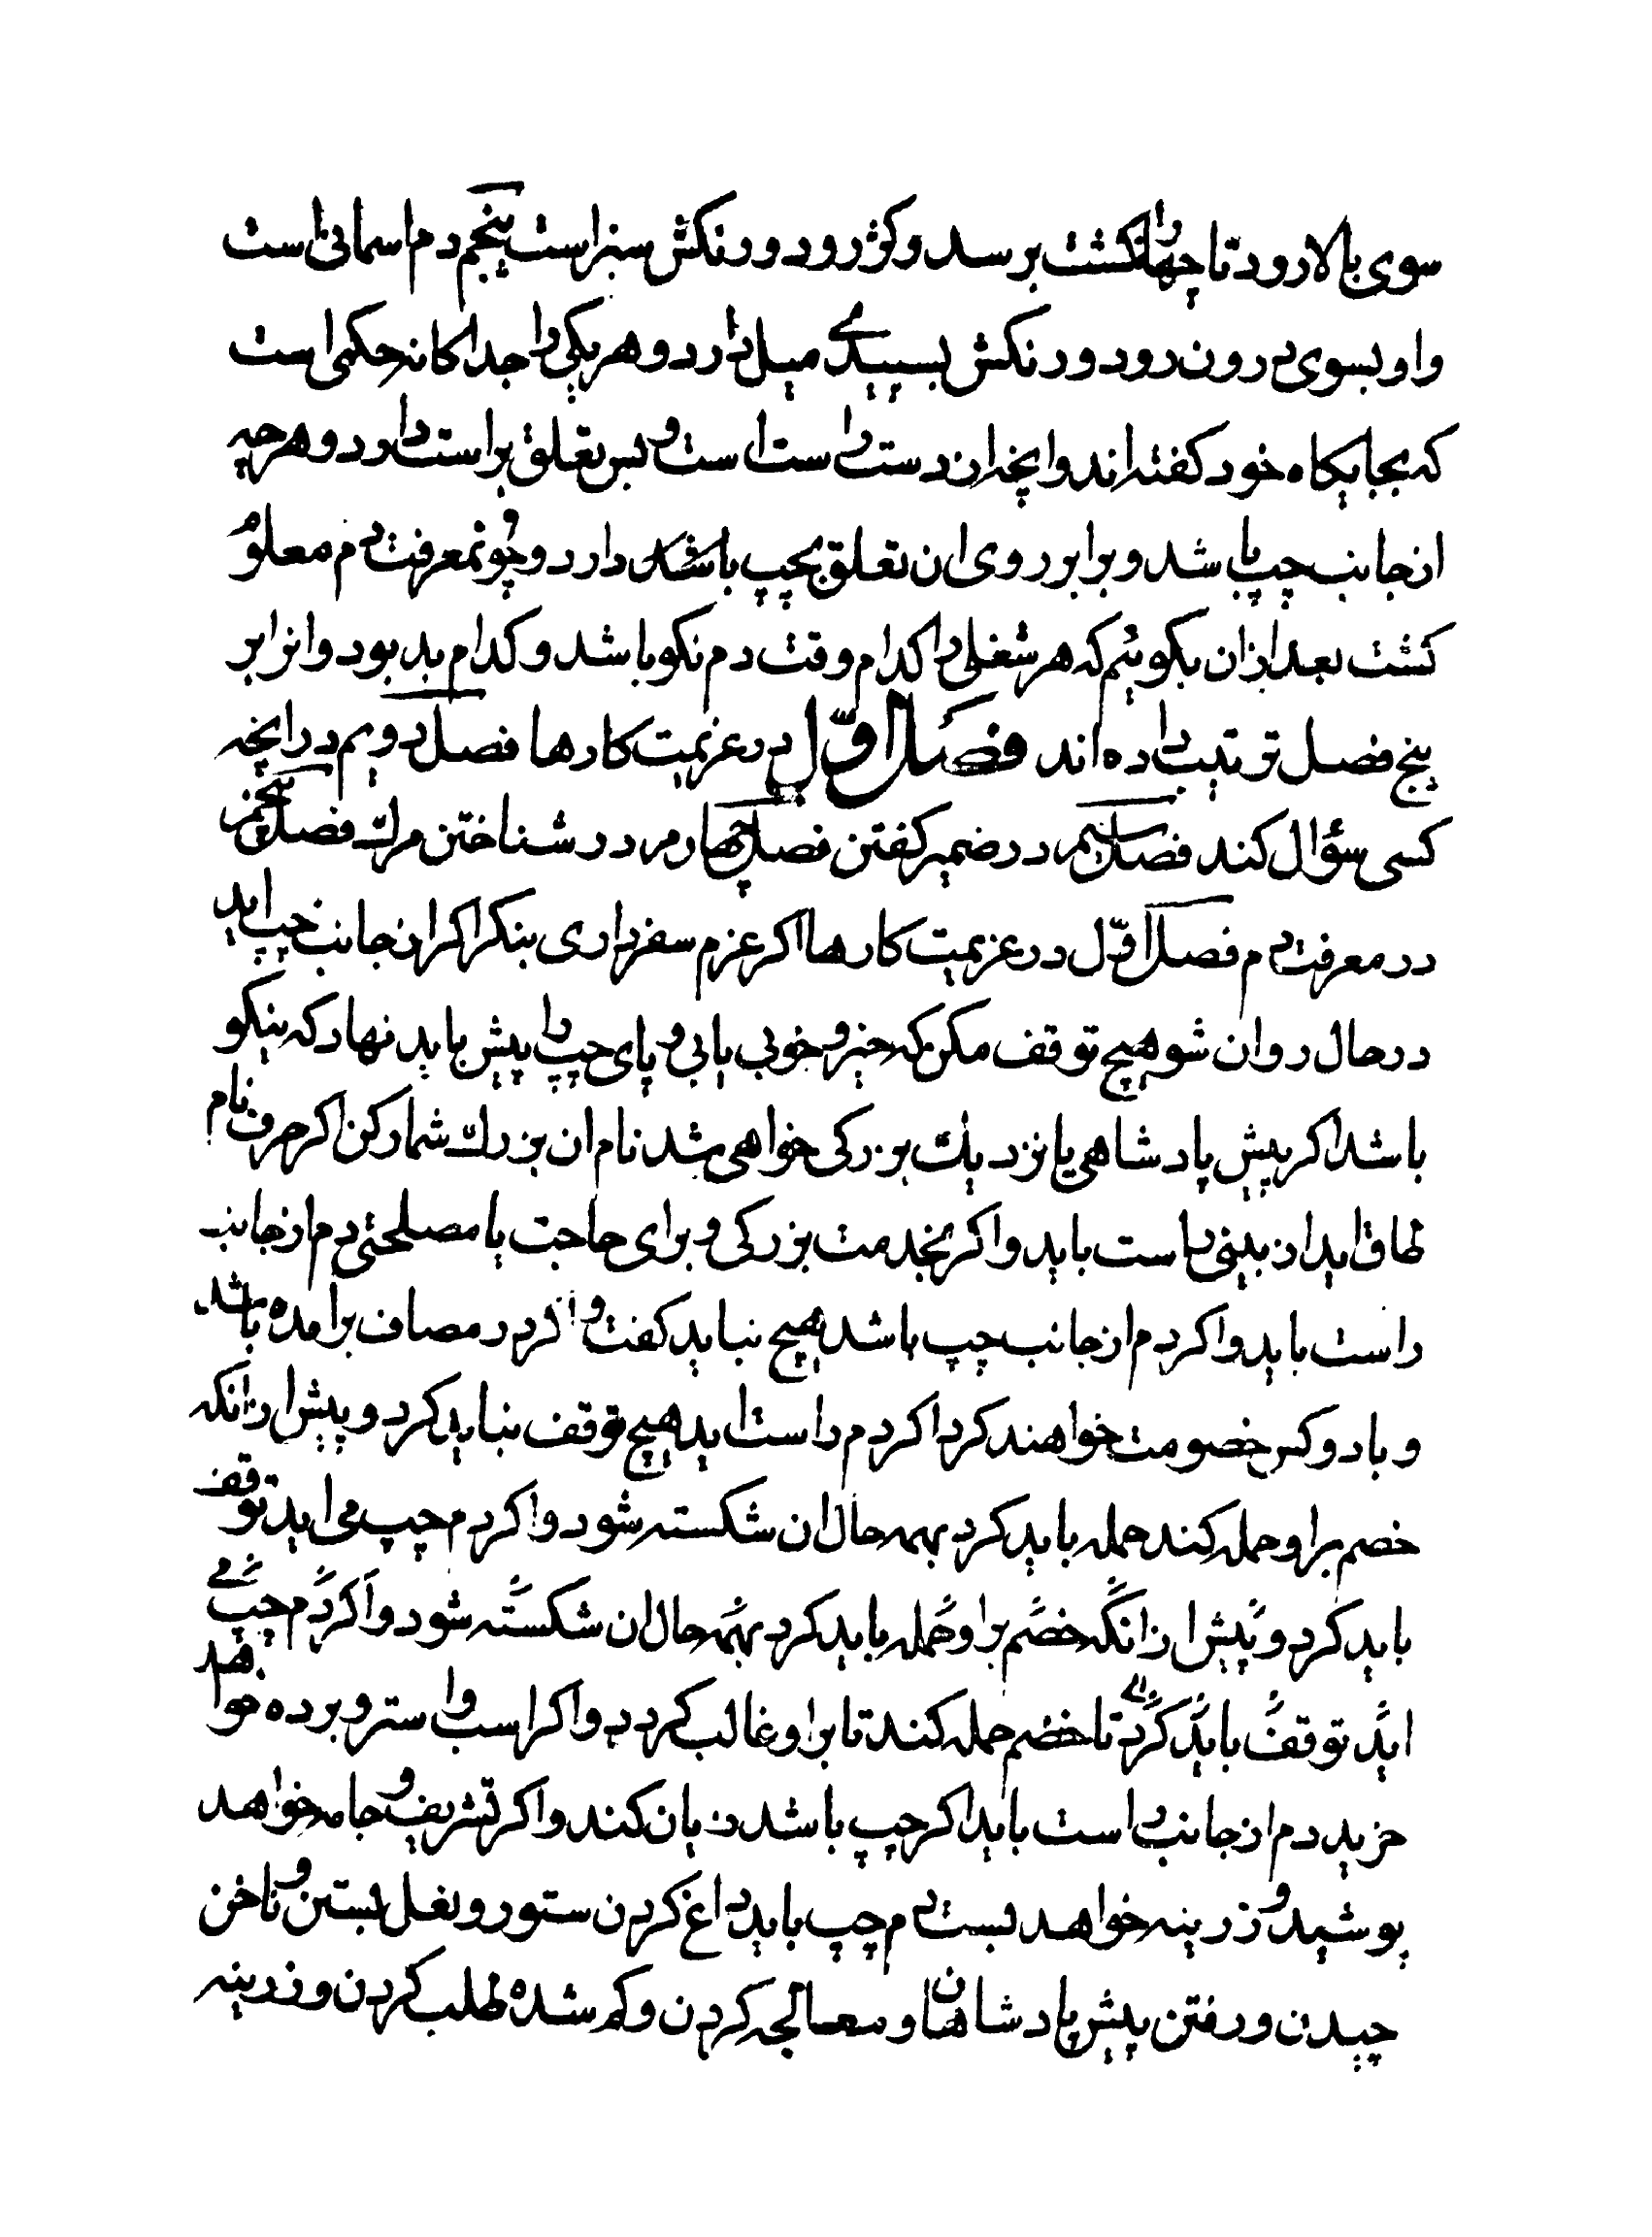 سوی بالا رود تا چهار انکشت برسد و کژ رود و رنکش سبز است پنجم دم اسمانی است
و او بسوی درون رود و رنکش بسپیدی میل دارد و هر یکی را جدا کانه حکمی است
که بجایکاه خود کفته اند و انچه ازدست راست است و بس تعلق براست دارد و هر چه
از جانب چپ باشد و برابر روی ان تعلق بچپ باشد دارد و چون معرفت دم معلوم
کشت بعد ازان بکوئیم که هر شغلی را کدام وقت دم نکو باشد و کدام بد بود و انرا بر
پنج فصل ترتیب داده اند فصل اوّل در عزیمت کارها فصل دویم در انچه
کسی سؤال کند فصل سیم در ضمیر کفتن فصل چهارم در شناختن مرک فصل پنجم
در معرفت دم فصل اوّل در عزیمت کارها اکر عزم سفر داری بنکر اکر از جانب چپ اید
در حال روان شو هیچ توقف مکن که خیر و خوبی یابی و پای چپ را پیش باید نهاد که نیکو
باشد اکر پیش پادشاهی یا نزدیک بزرکی خواهی شد نام ان بزرک شمار کن اکر حرف نام
طاق اید از بینی راست باید و اکر بخدمت بزرکی و برای حاجت یا مصلحتی دم از جانب
راست باید و اکر دم از جانب چپ باشد هیچ نباید کفت و اکر در مصاف برامده باشد
و با دو کس خصومت خواهند کرد اکر دم راست اید هیچ توقف نباید کرد و پیش ازانکه
خصم بر او حمله کند حمله باید کرد بهمه حال ان شکسته شود و اکر دم چپ می اید توقف
باید کرد و پیش ازانکه خصم بر او حمله باید کرد بهمه حال ان شکسته شود و اکر دم چپ می
اید توقف باید کرد تا خصم حمله کند تا بر او غالب کردد و اکر اسب و استر و برده خواهد
خرید دم از جانب راست باید اکر چپ باشد زیان کند و اکر تشریف و جامه خواهد
پوشید و زرینه خواهد بست دم چپ باید داغ کردن ستور و نعل بستن و ناخن
چیدن و رفتن پیش پادشاهان و معالجه کردن و کم شده طلب کردن و زرینه